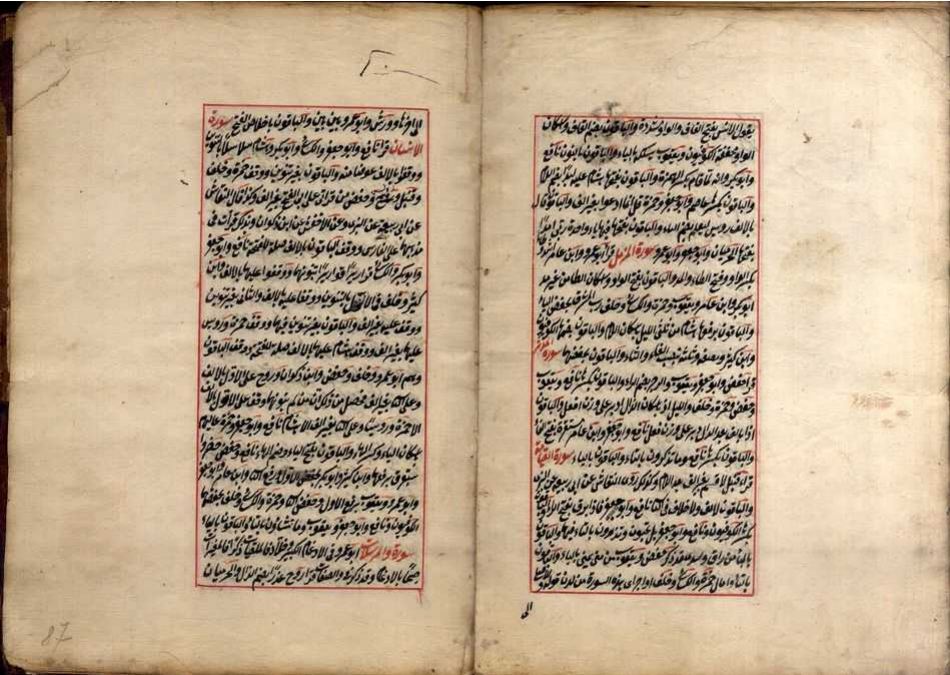 يقول الانس بفتح القاف والواو مشددة والباقون بضم القاف واسكان
الواو مخففة الكوفيون ويعقوب يسلكه بالياء والباقون بالنون نافع
وابوبكر وانه لما قام بكسر الهمزة والباقون بفتحها هشام عليه لبدا بضم اللام
والباقون بكسرها عاصم وابو جعفر وحمزة قل انما ادعوا بغير الف والباقون قال
بالالف رويس ليعلم بضم الياء والباقون بفتحها فيها ياء واحدة ربي امدا
فتحها الحرميان وابو جعفر وابو عمرو سورة المزمل قرا ابو عمرو وابن عامر
بكسر الواو وفتح الطاء والمد والباقون بفتح الواو واسكان الطاء من غير مد
ابوبكر وابن عامر ويعقوب وحمزة والكسائي وخلف رب المشرق بخفض الباء
والباقون برفعها هشام من ثلثي الليل باسكان اللام والباقون بضمها الكوفيون
وابن كثير ونصفه وثلثه بنصب الفاء والثاء والباقون بخفضها سورة المدثر
قرا حفص وابو جعفر ويعقوب والرجز بضم الراء والباقون بكسرها نافع ويعقوب
وحفص وحمزة وخلف والليل اذ باسكان الذال ادبر على وزن افعل والباقون
اذا بالف بعد الذال دبر على وزن فعل نافع وابو جعفر وابن عامر مستنفرة بفتح الفاء
والباقون بكسرها نافع وما تذكرون بالتاء والباقون بالياء سورة القيامة
قرا قنبل لاقسم بغير الف بعد اللام وكذلك روى النقاش عن ابي ربيعة عن البزي
والباقون بالالف ولا خلاف في الثاني نافع وابو جعفر فاذا برق بفتح الراء والباقون
بكسرها الكوفيون ونافع وابو جعفر بل تحبون وتذرون بالتاء فيهما والباقون
بالياء من راق وسدى قد ذكر حفص ويعقوب من مني يمنى بالياء والباقون
بالتاء وامال حمزة والكسائي وخلف اواخر اي هذه السورة من لدن قوله ولا صلى
الى
الى اخرها وورش وابو عمرو بين بين والباقون باخلاص الفتح سورة
الانسان قرا نافع وابو جعفر والكسائي وابوبكر وهشام سلاسلا بالتنوين
ووقفوا بالالف عوضا منه والباقون بغير تنوين ووقف حمزة وخلف
وقنبل وحفص من قراتي على ابي الفتح بغير الف وكذا قال النقاش
عن ابي ربيعة عن البزي وعن الاخفش عن ابن ذكوان وكذلك قرات في
مذهبهما على الفارسي ووقف الباقون بالالف صلة للفتحة نافع وابو جعفر
وابوبكر والكسائي قواريرا قواريرا بتنوينهما ووقفوا عليهما بالالف وابن
كثير وخلف في الاول بالتنوين ووقفا عليه بالالف والثاني بغير تنوين
ووقفا عليه بغير الف والباقون بغير تنوين فيهما ووقف حمزة ورويس
عليهما بغير الف ووقف هشام عليهما بالالف صلة للفتحة ووقف الباقون
وهم ابو عمرو وحفص وابن ذكوان وروح على الاول بالالف
وعلى الثاني بغير الف فحصل من ذلك ان من لم ينونهما وقف على الاول بالالف
الا حمزة ورويسا وعلى الثاني بغير الف الا هشام نافع وابو جعفر وحمزة عاليهم
باسكان الياء وكسر الهاء والباقون بفتح الياء وضم الهاء نافع وحفص خضر
واستبرق برفعهما وابن كثير وابوبكر بخفض الاول ورفع الثاني وابن عامر وابو جعفر
وابو عمرو ويعقوب برفع الاول وخفض الثاني وحمزة والكسائي وخلف بخفضهما
الكوفيون ونافع وابو جعفر ويعقوب وما تشاؤن بالتاء والباقون بالياء
سورة والمرسلات ابو عمرو في الادغام الكبير وخلاد فالملقيات ذكرا
صبحا بالادغام وقد ذكر في والصافات قرا روح عذرا بضم الذال والحرميان
87